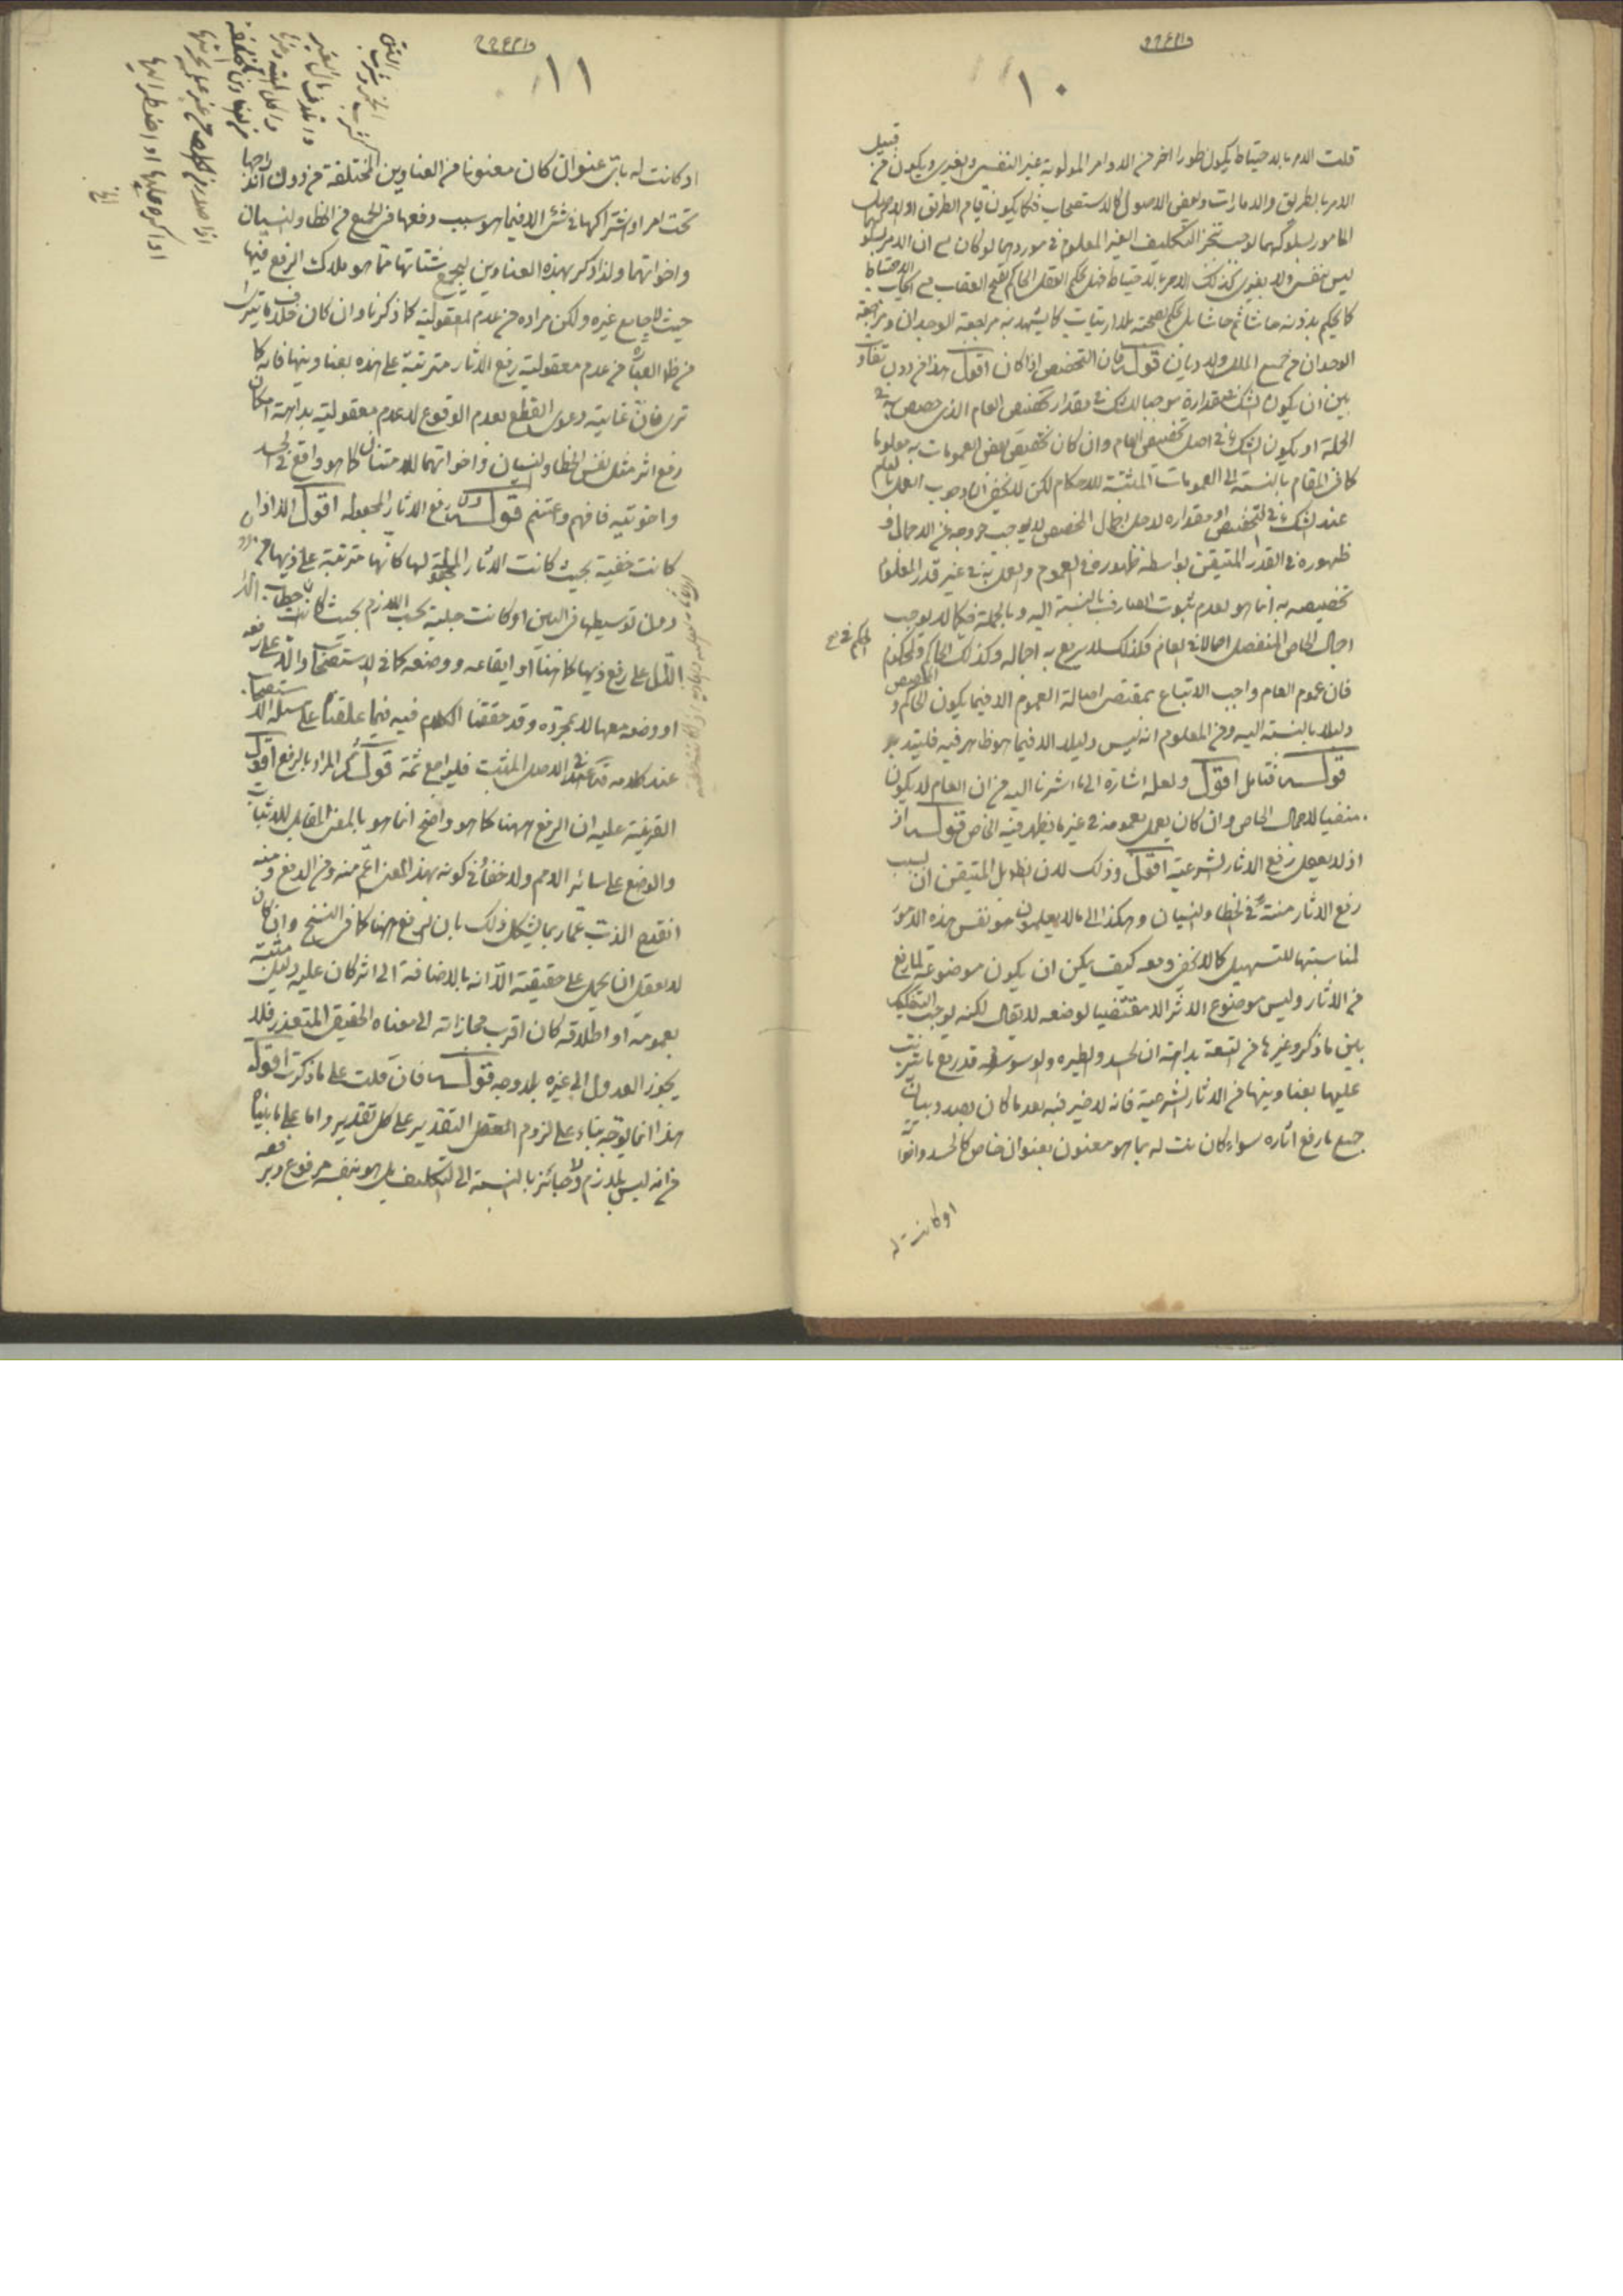 ١٠
قلت الامر بالاحتياط يكون طورا اخر من الاوامر المولوية غير النفسى والغيرى ويكون من قبيل
الامر بالطريق والامارات وبعض الاصول كالاستصحاب فكما يكون قيام الطريق او الاصل
المامور بسلوكهما يوجب تنجز التكليف الغير المعلوم فى موردهما لو كان مع ان الامر بسلوكهما
ليس بنفسى ولا بغيرى كذلك الامر بالاحتياط فهل يحكم العقل الحاكم بقبح العقاب مع ايجاب الاحتياط
كما يحكم بدونه حاشا ثم حاشا بل يحكم بصحته بلا ارتياب كما يشهد به مراجعة الوجدان ومراجعة
الوجدان من جميع الملل والاديان قوله فان التخصيص اذا كان اقول هذا من دون تفاوت
بين ان يكون الشك فى مقداره موجبا للشك فى مقدار تخصيص العام الذى خصص به فى
الجملة او يكون الشك فى اصل تخصيص العام وان كان تخصيص بعض العمومات به معلوما
كما فى المقام بالنسبة الى العمومات المثبتة للاحكام لكن لا يخفى ان وجوب العمل بالعام
عند الشك فى التخصيص او مقداره لاجل اجمال المخصص لا يوجب خروجه عن الاجمال و
ظهوره فى القدر المتيقن بواسطة ظهوره فى العموم والعمل به فى غير قدر المعلوم
تخصيصه به انما هو لعدم ثبوت الصارف بالنسبة اليه وبالجملة فكما لا يوجب
اجمال الخاص المنفصل اجمالا فى العام فكذلك لا يرتفع به اجماله وكذلك الحاكم والمحكوم
فان عموم العام واجب الاتباع بمقتضى اصالة العموم الا فيما يكون الحاكم والمخصص
دليلا بالنسبة اليه ومن المعلوم انه ليس دليلا الا فيما هو ظاهر فيه فليتدبر
قوله فتامل اقول ولعله اشارة الى ما اشرنا اليه من ان العام لا يكون
منفيا لاجمال الخاص وان كان يعمل بعمومه فى غير ما يظهر فيه الخاص قوله اذ
اذ لا يعقل رفع الاثار الشرعية اقول وذلك لان الظاهر بل المتيقن ان بسبب
رفع الاثار منة فى الخطا والنسيان وهكذا الى ما لا يعلمون هو نفس هذه الامور
لمناسبتها للتسهيل كما لا يخفى ومعه كيف يمكن ان يكون موضوعة لما رفع
من الاثار وليس موضوع الاثر الا مقتضيا لوضعه لا يقال لكنه يوجب التفكيك
بين ما ذكر وغيرها من التسعة بداهة ان الحسد والطيرة والوسوسة قد رفع ما ترتب
عليها بعناوينها من الاثار الشرعية فانه لا ضير فيه بعد ما كان بصدد بيان
جميع ما رفع اثاره سواء كان ثبت له بما هو معنون بعنوان خاص كالحسد واخواته
او كانت له
١١
او كانت له باى عنوان كان معنونا من العناوين المختلفة من دون اندراجها
تحت امر او اشتراكها فى شئ الا فيما هو سبب رفعها من الجميع من الخطا والنسيان
واخواتهما ولذا ذكر بهذه العناوين ليجمع شتاتها بما هو ملاك الرفع فيها
حيث لا جامع غيره ولكن مراده من عدم المعقولية كما ذكرنا وان كان خلاف ما يترائى
من ظاهر العبارة من عدم معقولية رفع الاثار مترتبة على هذه بعناوينها فانه كما
ترى فان غايته دعوى القطع بعدم الوقوع لا عدم معقوليته بداهة امكان
رفع اثر مثل نفس الخطا والنسيان واخواتهما للامتنان كما هو واقع فى الحسد
واخويه فافهم واغتنم قوله دون رفع الاثار المجعولة اقول الا اذا
كانت خفية بحيث كانت الاثار المجعولة لها كانها مترتبة على ذيها من
دون توسيطها فى البين او كانت جلية بحسب اللازم بحيث كانت خطاب الدال
الدال على رفع ذيها كما هنا او ايقاعه ووضعه كما فى الاستصحاب دالا على رفعه
او وضعه معها لا بمجرده وقد حققنا الكلام فيه فيما علقنا على مسئلة الاستصحاب
عند كلامه قده فى الاصل المثبت فليراجع ثمة قوله ثم المراد بالرفع اقول
القرينة عليه ان الرفع ههنا كما هو واضح انما هو بالمعنى المقابل للاثبات
والوضع على سائر الامم ولا خفاء فى كونه بهذا المعنى اعم منه ومن الدفع ومنه
انقدح الذب عما ربما يشكل ذلك بان الرفع ههنا كما فى النسخ وان كان
لا يعقل ان يحمل على حقيقته الا انه بالاضافة الى اثر كان عليه دليل مثبته
بعمومه او اطلاقه كان اقرب مجازاته الى معناه الحقيقى المتعذر فلا
يجوز العدول الى غيره بلا وجه قوله فان قلت على ما ذكرت اقول
هذا انما يتوجه بناء على لزوم المعقل التقدير على كل تقدير واما على ما بيناه
من انه ليس بلازم ولا جائز بالنسبة الى التكليف بل هو بنفسه مرفوع ورفعه